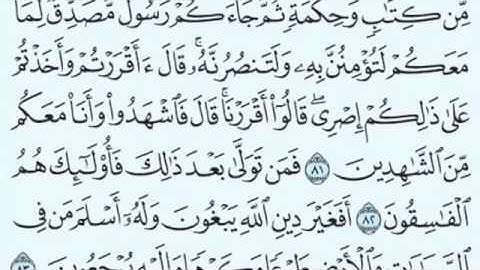 مِّن كِتَٰبٖ وَحِكۡمَةٖ ثُمَّ جَآءَكُمۡ رَسُولٞ مُّصَدِّقٞ لِّمَا
مَعَكُمۡ لَتُؤۡمِنُنَّ بِهِۦ وَلَتَنصُرُنَّهُۥۚ قَالَ ءَأَقۡرَرۡتُمۡ وَأَخَذۡتُمۡ
عَلَىٰ ذَٰلِكُمۡ إِصۡرِيۖ قَالُوٓاْ أَقۡرَرۡنَاۚ قَالَ فَٱشۡهَدُواْ وَأَنَا۠ مَعَكُم
مِّنَ ٱلشَّٰهِدِينَ ٨١ فَمَن تَوَلَّىٰ بَعۡدَ ذَٰلِكَ فَأُوْلَٰٓئِكَ هُمُ
ٱلۡفَٰسِقُونَ ٨٢ أَفَغَيۡرَ دِينِ ٱللَّهِ يَبۡغُونَ وَلَهُۥٓ أَسۡلَمَ مَن فِي
ٱلسَّمَٰوَٰتِ وَٱلۡأَرۡضِ طَوۡعٗا وَكَرۡهٗا وَإِلَيۡهِ يُرۡجَعُونَ ٨٣